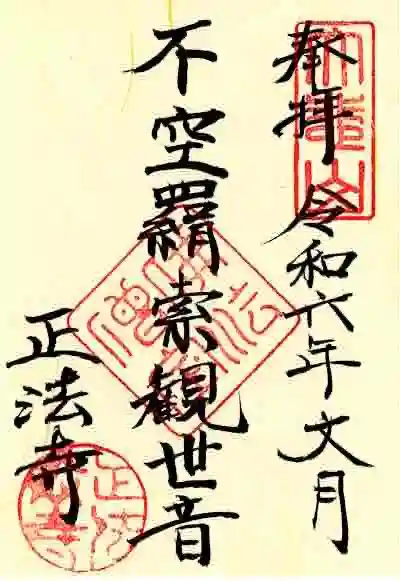 奉拝 令和六年文月
不空羂索観世音
正法寺